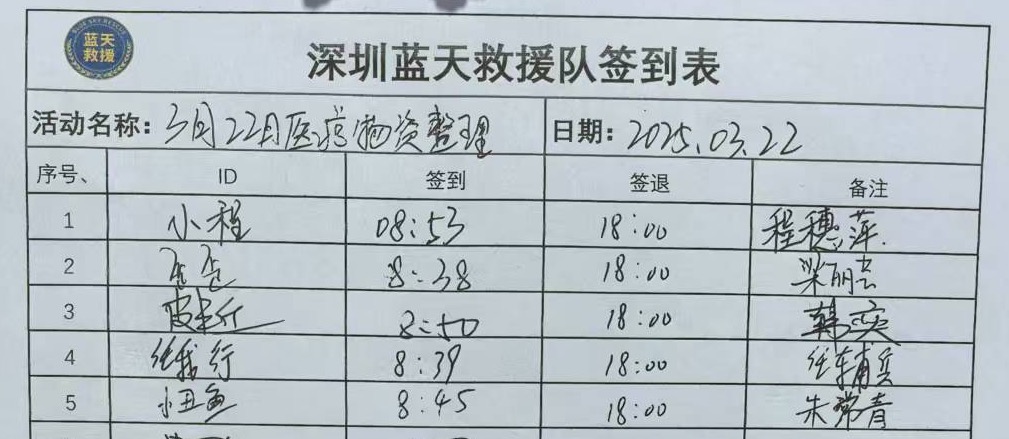 BLUE SKY RESCUE
蓝天
救援
深圳蓝天救援队签到表
活动名称：3月22日医疗物资整理 日期：2025.03.22
序号、 ID 签到 签退 备注
1 小程 08:53 18:00 程穗萍.
2 8:38 18:00 梁丽
3 8:50 18:00 韩奕
4 任我行 8:39 18:00 任辅兵
5 小丑鱼 8:45 18:00 朱常青